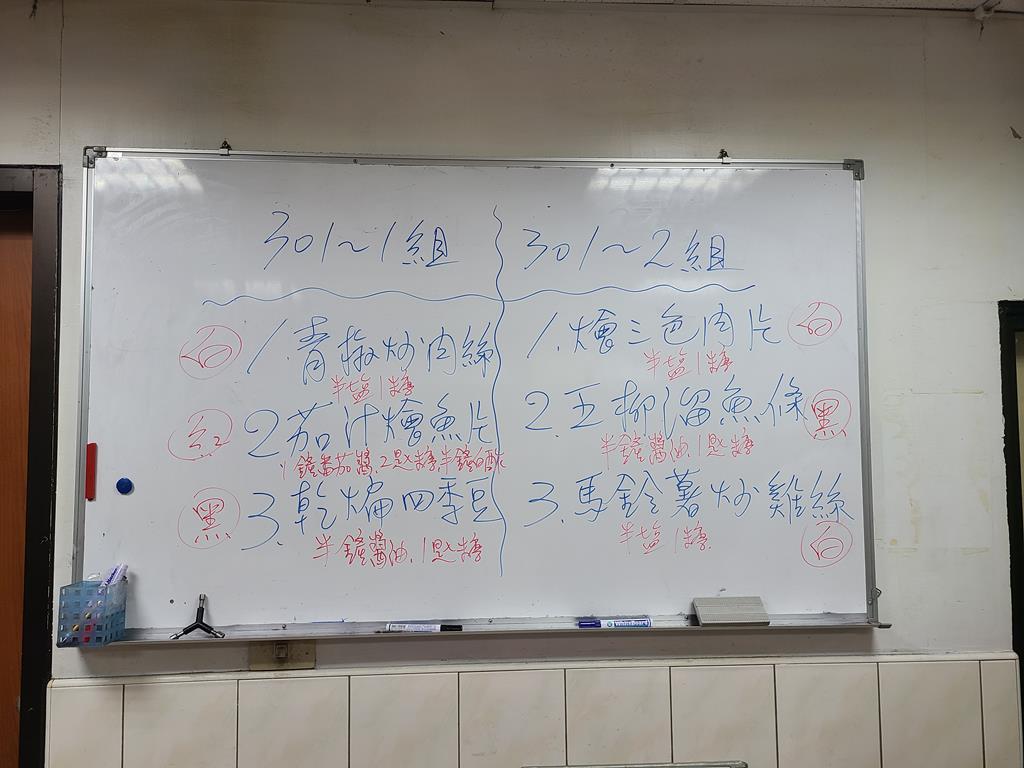 301~1組
白 1.青椒炒肉絲
半塩1糖
紅 2茄汁燴魚片
1鏟番茄醬.2匙糖.半鏟白醋
黑 3.乾煸四季豆
半鏟醬油.1匙糖
301~2組
1.燴三色肉片 白
半塩1糖
2.五柳溜魚條 黑
半鏟醬油.1匙糖
3.馬鈴薯炒雞絲
半塩1糖.
白
WhiteBoard